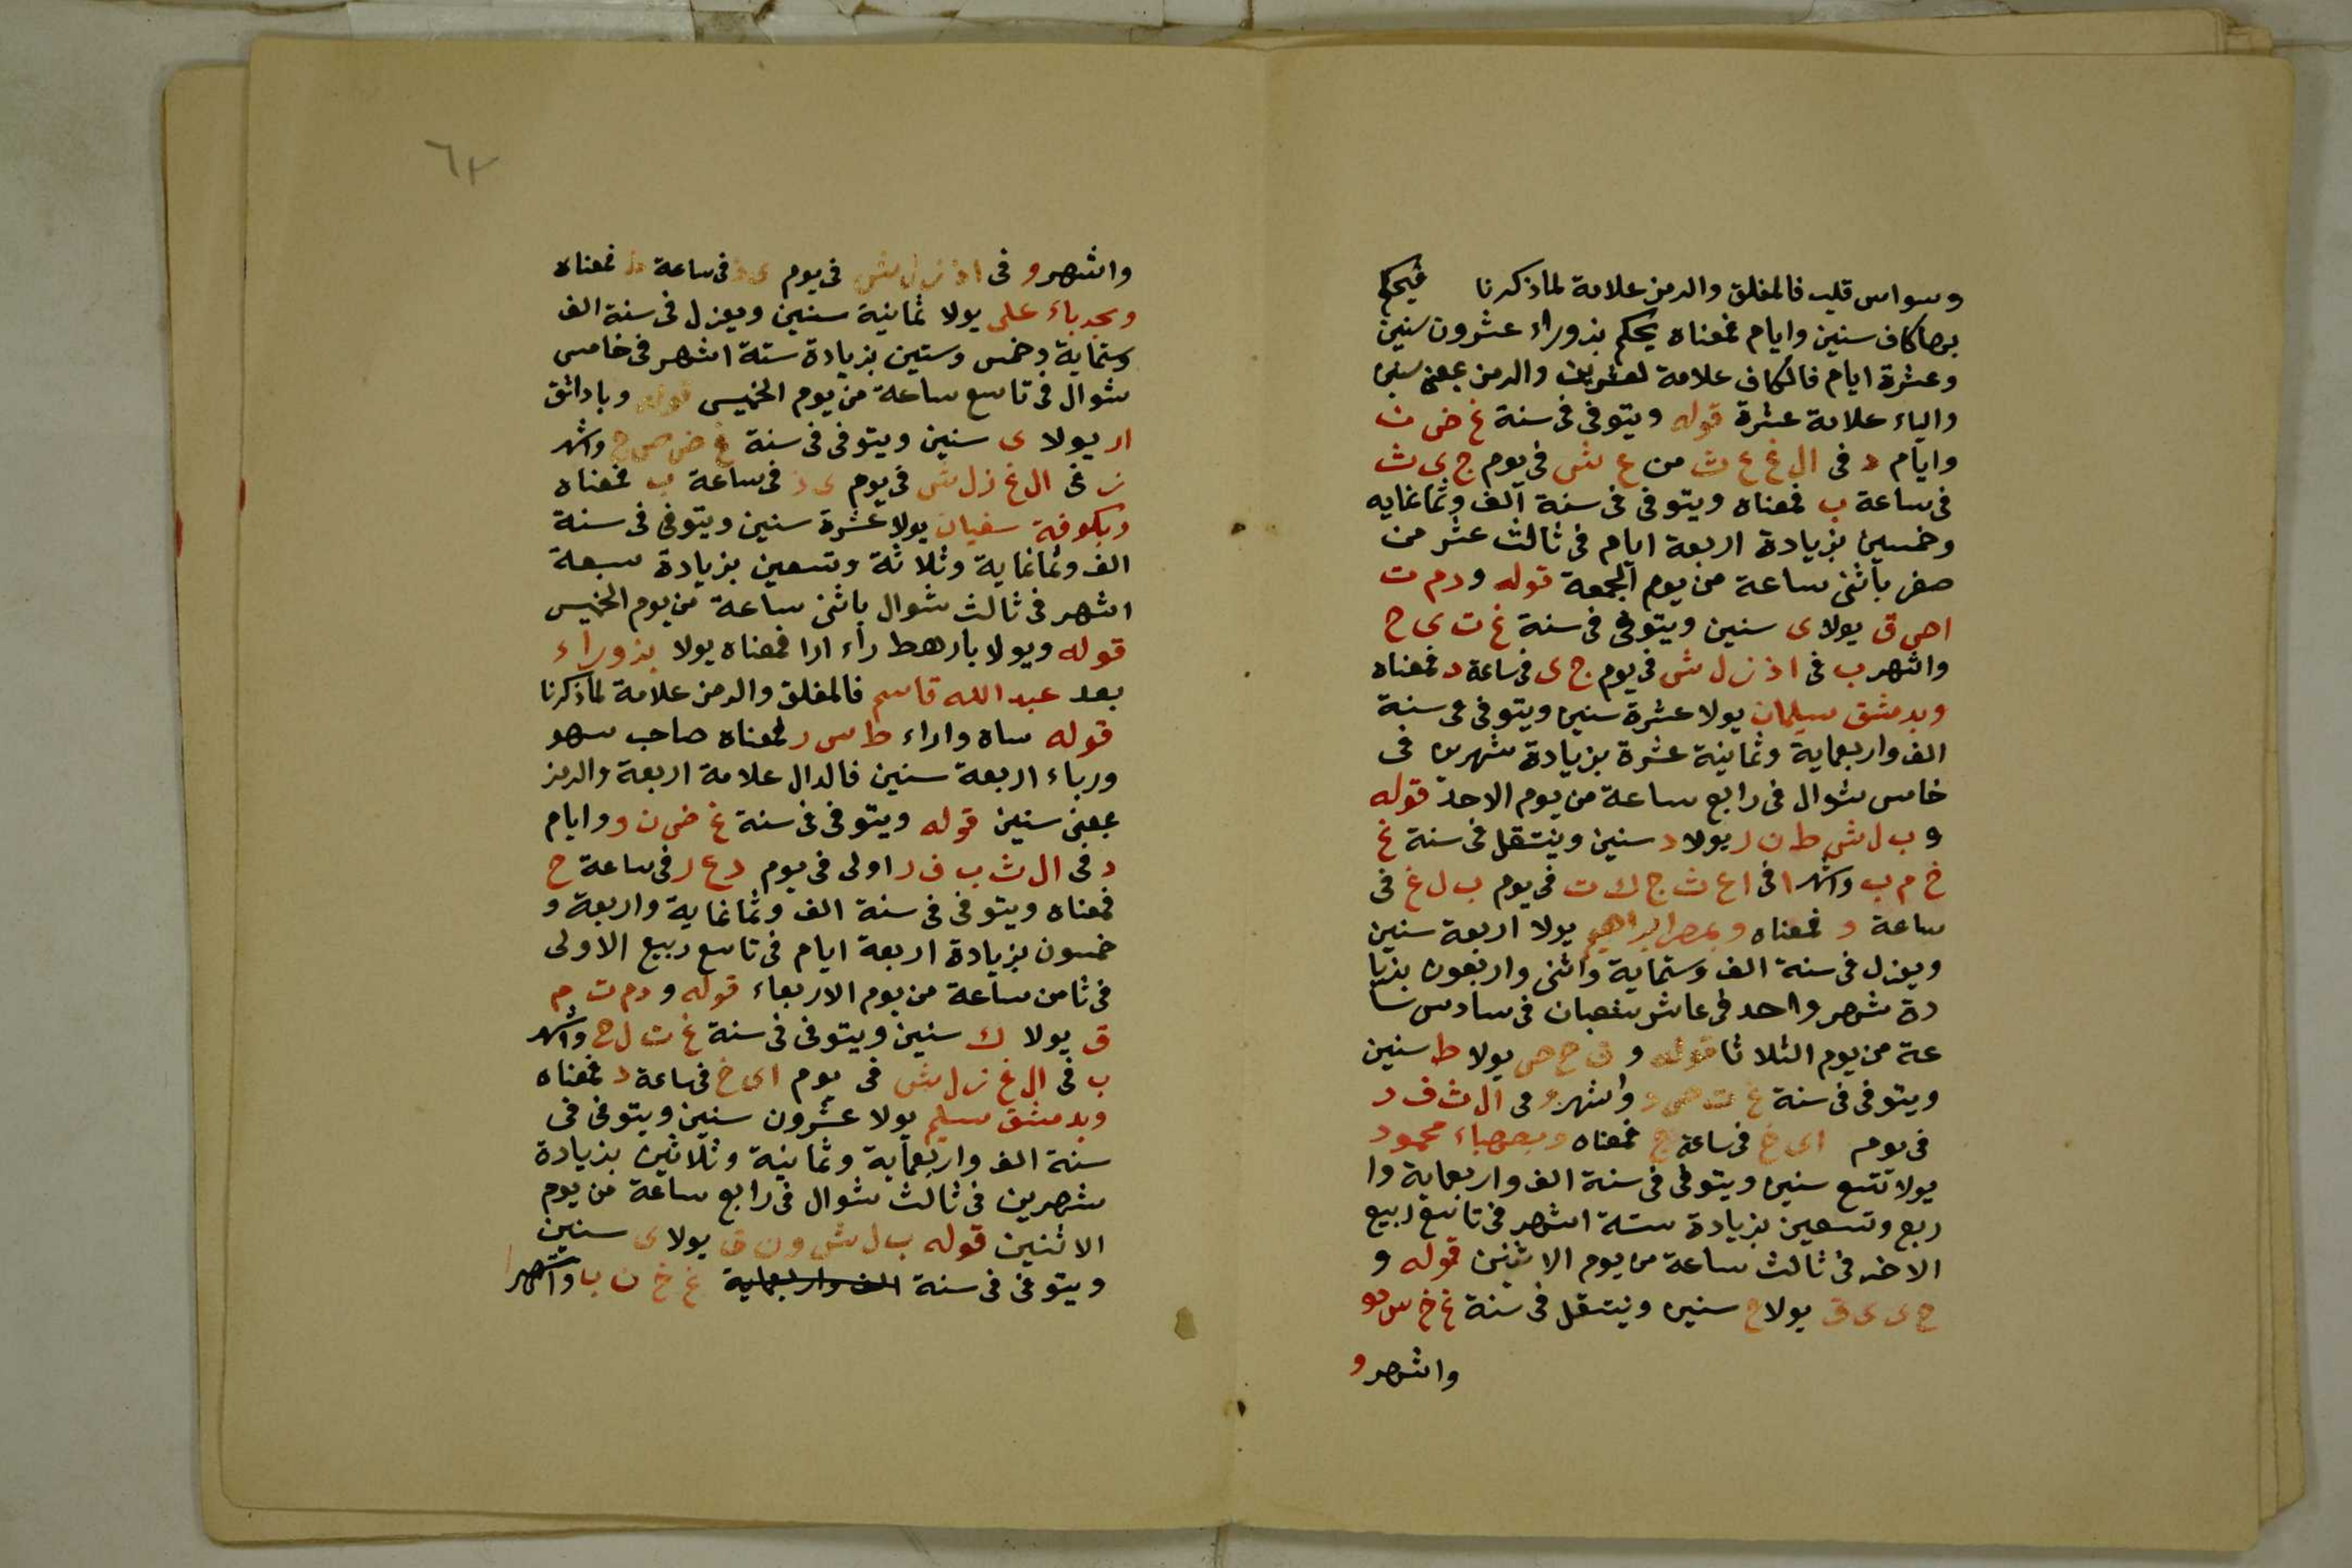 وسواس قلب فالمغلق والرمز علامة لما ذكرنا فيحكم
بصا كاف سنين وايام فمعناه يحكم بزوراء عشرون سنين
وعشرة ايام فالكاف علامة لعشرين والرمز بمعنى سنين
والياء علامة عشرة قوله ويتوفى فى سنة غ ض ن
وايام د فى ال غ ع ث من ع ش فى يوم ج ى ث
فى ساعة ب فمعناه ويتوفى فى سنة الف وثمانمايه
وخمسين بزيادة اربعة ايام فى ثالث عشر من
صفر باثنى ساعة من يوم الجمعة قوله ودم ت
اهى ق يولا ى سنين ويتوفى فى سنة غ ت ى ح
واشهر ب فى اذ ز ل ش فى يوم ج ى فى ساعة د فمعناه
وبدمشق سليمان يولا عشرة سنين ويتوفى فى سنة
الف واربعماية وثمانية عشرة بزيادة شهرين فى
خامس شوال فى رابع ساعة من يوم الاحد قوله
و ب ل ش ط ن ر يولا د سنين وينتقل فى سنة غ
خ م ب واشهر ا فى اع ث ج ك ت فى يوم ب ل غ فى
ساعة و فمعناه وبمصر ابراهيم يولا اربعة سنين
ويعزل فى سنة الف وستماية واثنى واربعون بزيا
دة شهر واحد فى عاشر شعبان فى سادس سا
عة من يوم الثلاثا قوله و ن ح ص يولا ط سنين
ويتوفى فى سنة غ ت ص د واشهر و فى ال ث ف د
فى يوم اى خ فى ساعة ج فمعناه وبصهباء محمود
يولا تتسع سنين ويتوفى فى سنة الف واربعماية وا
ربع وتسعين بزيادة ستة اشهر فى تاسع ربيع
الاخر فى ثالث ساعة من يوم الاثنين قوله و
ح ى ى ق يولا ح سنين وينتقل فى سنة غ خ س هو
واشهر و
٦٢
واشهر و فى اذ ز ل ش فى يوم ى ذ فى ساعة ط فمعناه
وبحدباء على يولا ثمانية سنين ويعزل فى سنة الف
وستماية وخمس وستين بزيادة ستة اشهر فى خامس
شوال فى تاسع ساعة من يوم الخميس قوله وباداثق
ار يولا ى سنين ويتوفى فى سنة غ ض ص ج واشهر
ز فى ال غ ز ل ش فى يوم ى ذ فى ساعة ب فمعناه
وبكوفة سفيان يولا عشرة سنين ويتوفى فى سنة
الف وثمانماية وثلاثة وتسعين بزيادة سبعة
اشهر فى ثالث شوال باثنى ساعة من يوم الخميس
قوله ويولا بارهط راء ارا فمعناه يولا بزوراء
بعد عبد الله قاسم فالمغلق والرمز علامة لما ذكرنا
قوله ساه واراء ط س ر فمعناه صاحب سهو
ورباء اربعة سنين فالدال علامة اربعة والرمز
بمعنى سنين قوله ويتوفى فى سنة غ ض ن د وايام
د فى ال ث ب ف ر اولى فى يوم د ع ر فى ساعة ح
فمعناه ويتوفى فى سنة الف وثمانماية واربعة و
خمسون بزيادة اربعة ايام فى تاسع ربيع الاولى
فى ثامن ساعة من يوم الاربعاء قوله و دم ت م
ق يولا ك سنين ويتوفى فى سنة غ ت ل ح واشهر
ب فى ال غ ز ل ش فى يوم اى خ فى ساعة د فمعناه
وبدمشق سليم يولا عشرون سنين ويتوفى فى
سنة الف واربعماية وثمانية وثلاثين بزيادة
شهرين فى ثالث شوال فى رابع ساعة من يوم
الاثنين قوله ب ل ش و ن ق يولا ى سنين
ويتوفى فى سنة الف واربعماية غ خ ن ب واشهر ا